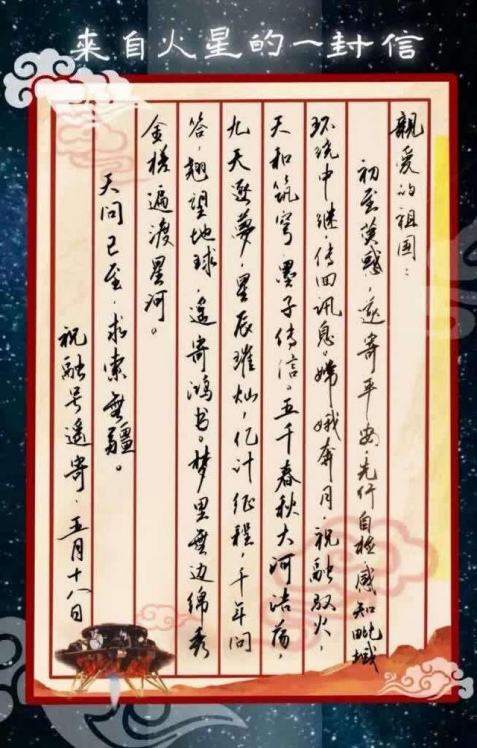 来自火星的一封信
親爱的祖国：
初至荧惑，遥寄平安。先行自检，感知毗域
环绕中继，传回讯息。嫦娥奔月，祝融驭火，
天和筑穹，墨子传信。五千春秋大河浩荡，
九天逐夢，星辰璀灿，亿计征程，千年问
答，翘望地球，遥寄鸿书。梦里無边锦秀
金槎遍渡星河。
天问已至，求索無疆。
祝融号遥寄·五月十八日